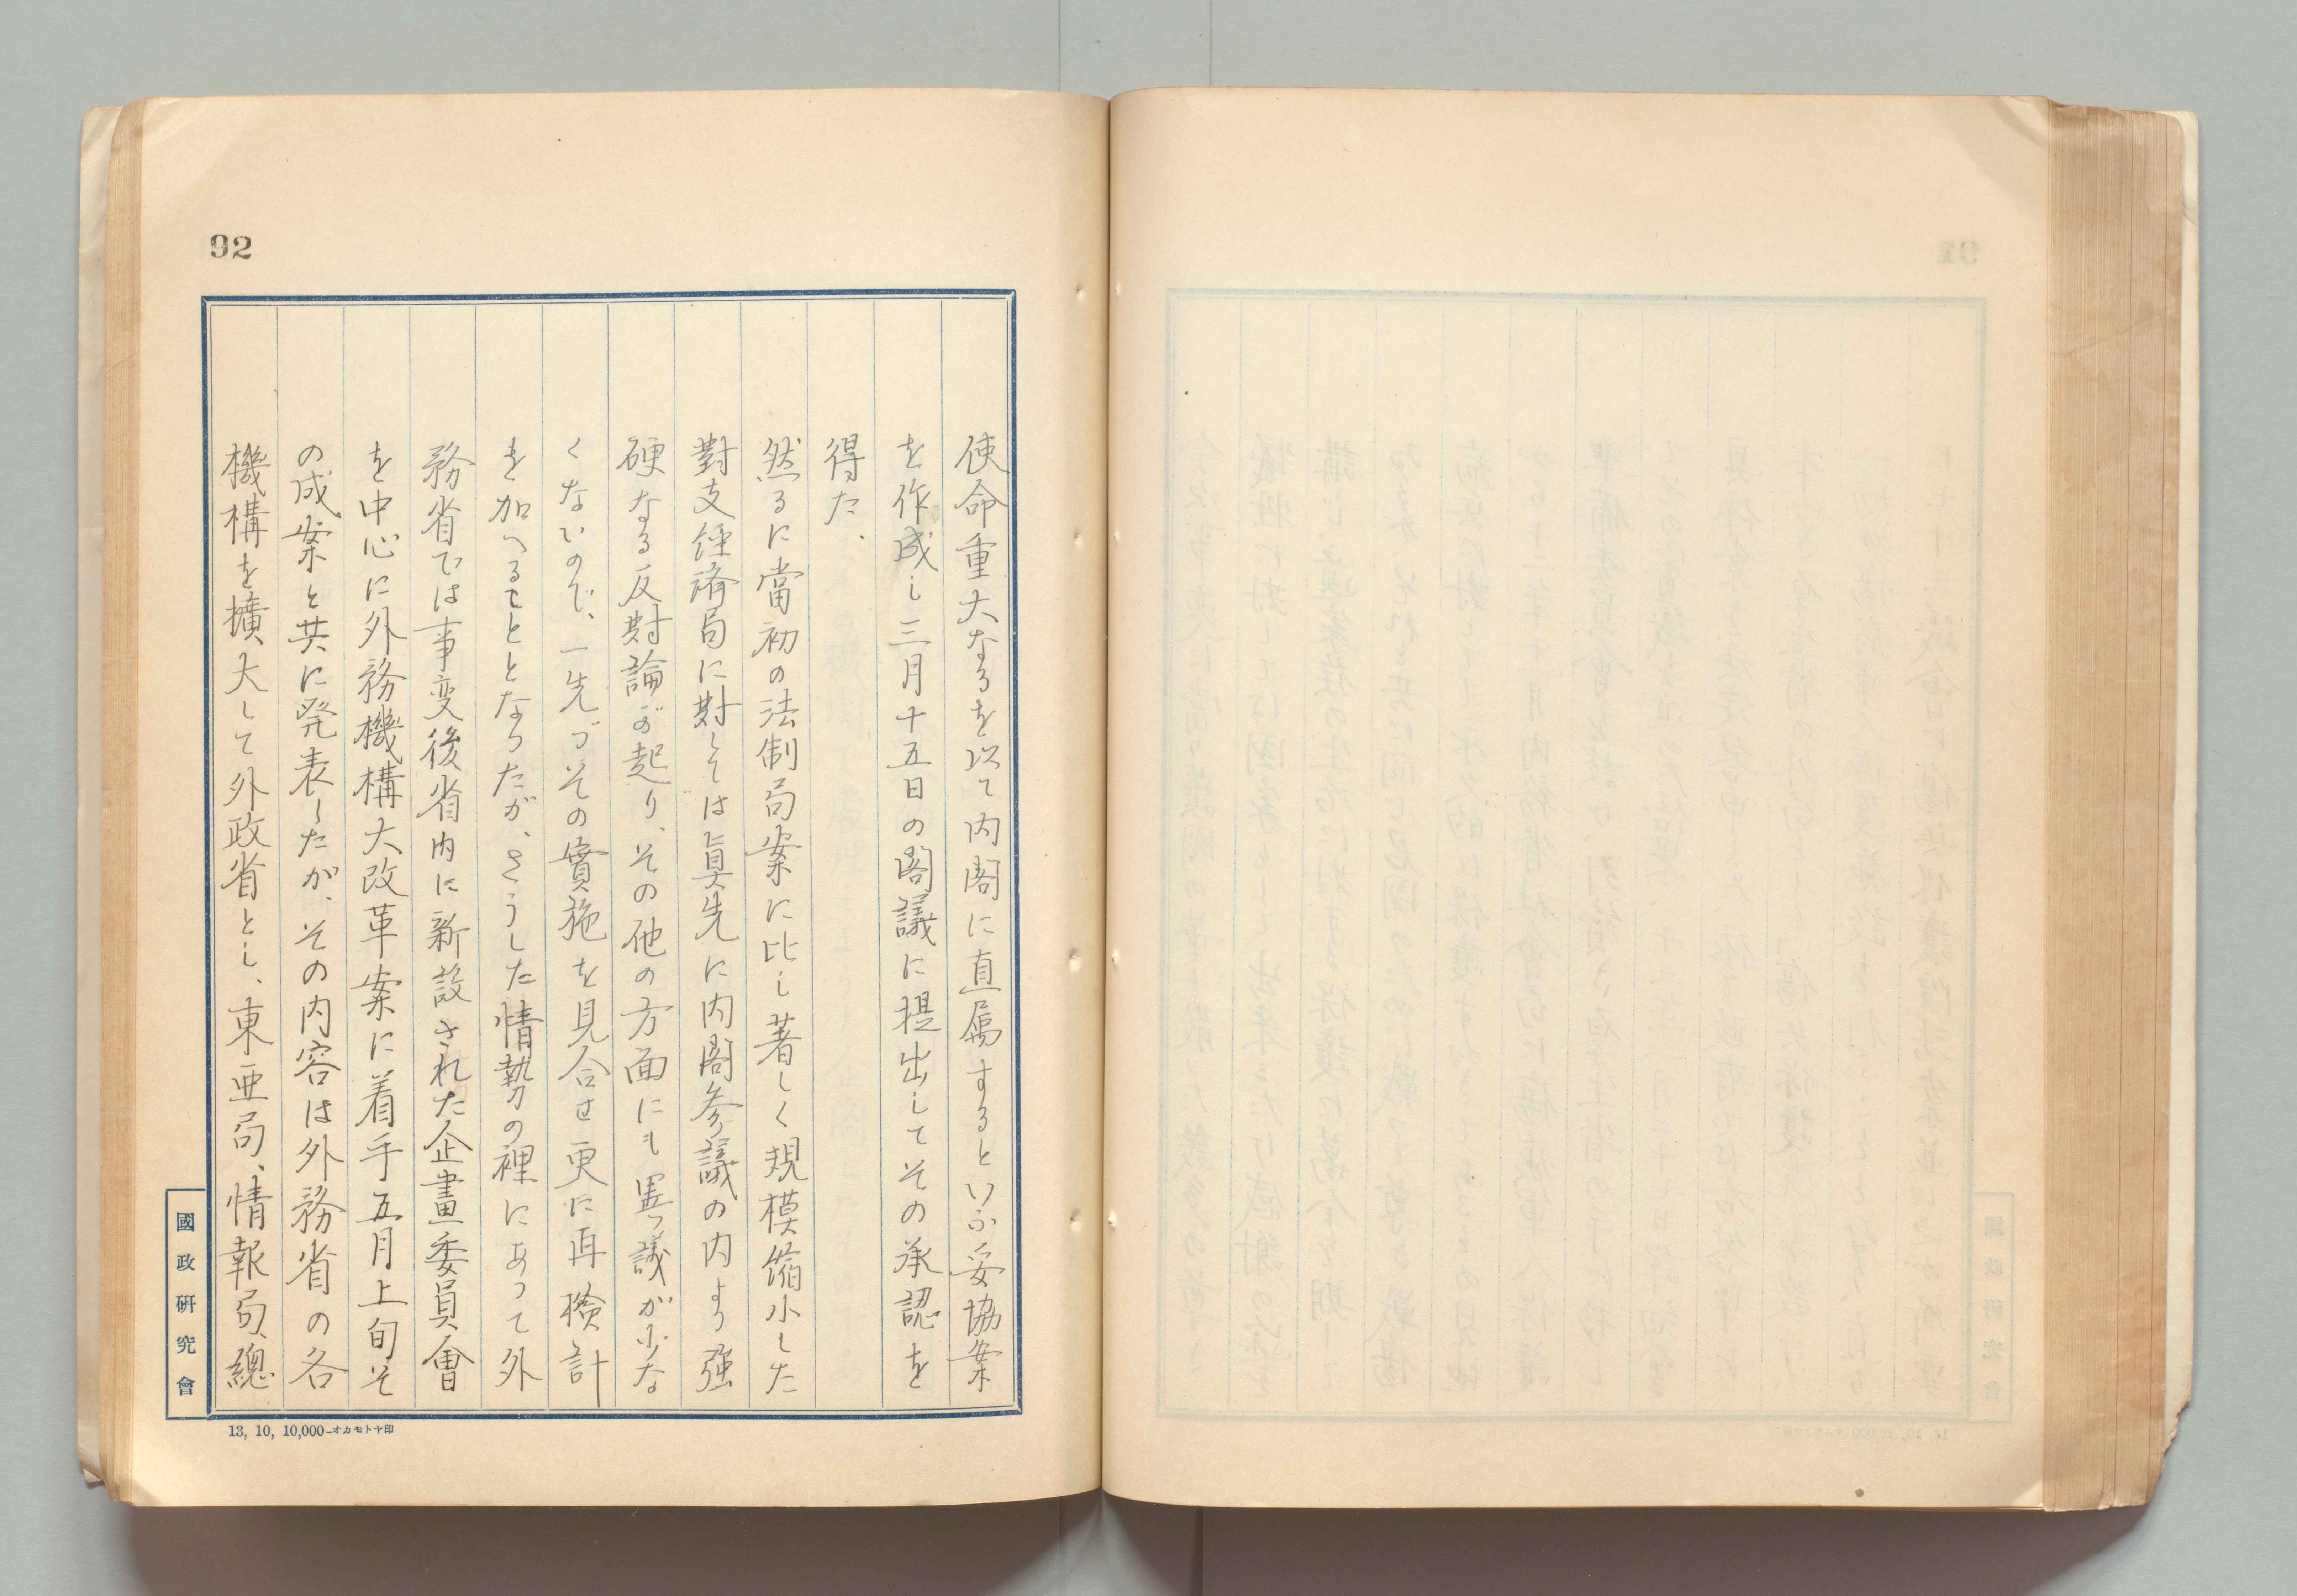 92
使命重大なるを以て内閣に直属するといふ妥協案
を作成し三月十五日の閣議に提出してその承認を
得た、
然るに當初の法制局案に比し著しく規模縮小した
對支経済局に對しては眞先に内閣参議の内より強
硬なる反對論が起り、その他の方面にも異議が少な
くないので、一先づその實施を見合せ更に再檢討
を加へることとなつたが、さうした情勢の裡にあつて外
務省では事変後省内に新設された企畫委員會
を中心に外務機構大改革案に着手五月上旬そ
の成案と共に発表したが、その内容は外務省の各
機構を擴大して外政省とし、東亜局、情報局、總
國政研究會
13, 10, 10,000-オカモトヤ印